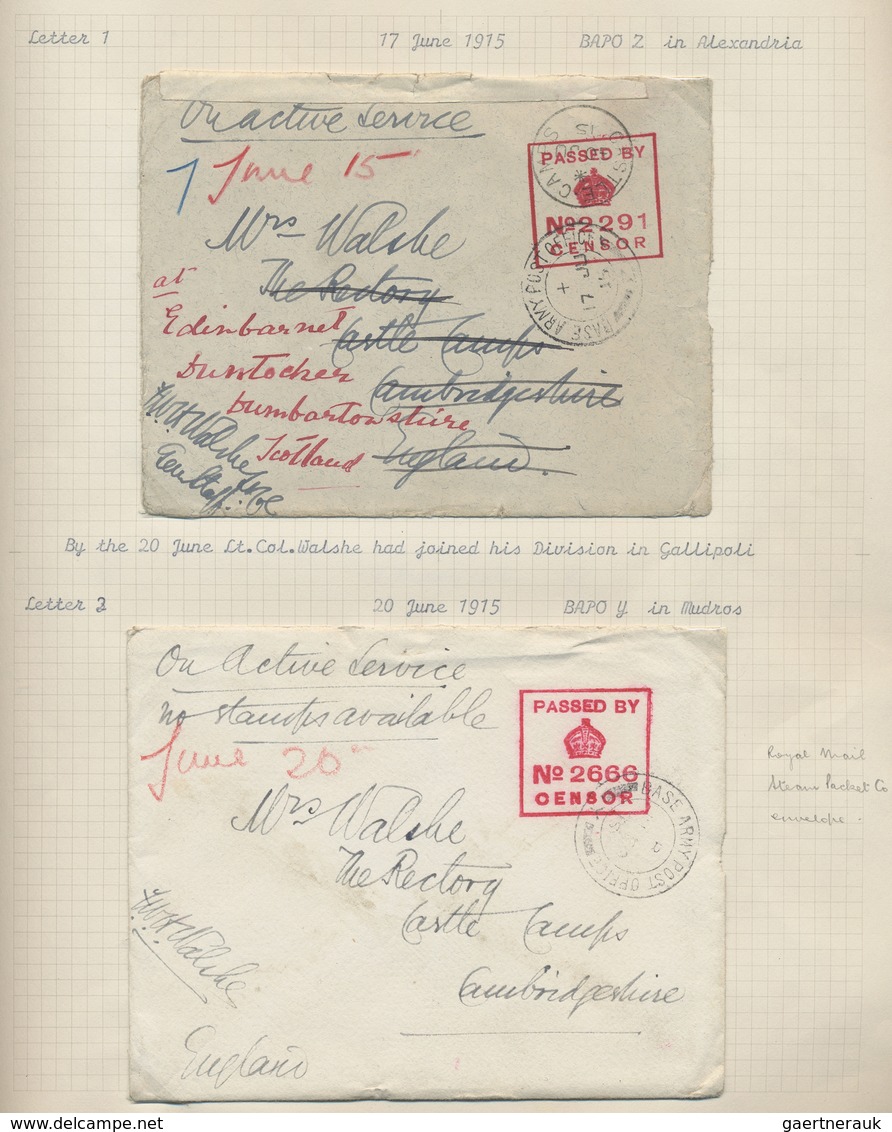 Letter 1 17 June 1915 BAPO Z in Alexandria
On active service
1 June 15
CASTLE CAMPS
PASSED BY
No 2291
CENSOR
BASE ARMY POST OFFICE
17 JU
Mrs Walshe
The Rectory
Castle Camps
Cambridgeshire
England.
at
Edinbarnet
Duntocher
Dumbartonshire
Scotland
F.W.H. Walshe
By the 20 June Lt. Col. Walshe had joined his Division in Gallipoli
Letter 2 20 June 1915 BAPO Y in Mudros
On Active Service
no stamps available
June 20
PASSED BY
No 2666
CENSOR
BASE ARMY POST OFFICE
Mrs Walshe
The Rectory
Castle Camps
Cambridgeshire
F.W.H. Walshe
England
Royal Mail
Steam Packet Co
envelope.
gaertnerauk